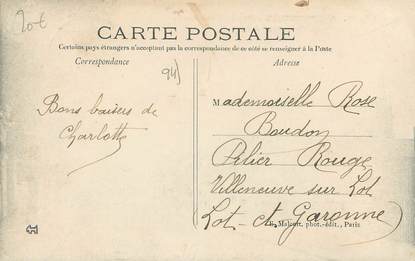 20€
CARTE POSTALE
Certains pays étrangers n'acceptant pas la correspondance de ce côté se renseigner à la Poste
Correspondance
Adresse
94)
Bons baisers de
Charlotte
Mademoiselle Rose
Boudon
Pilier Rouge
Villeneuve sur Lot
Lot-et-Garonne)
Malcuit, phot.-édit., Paris